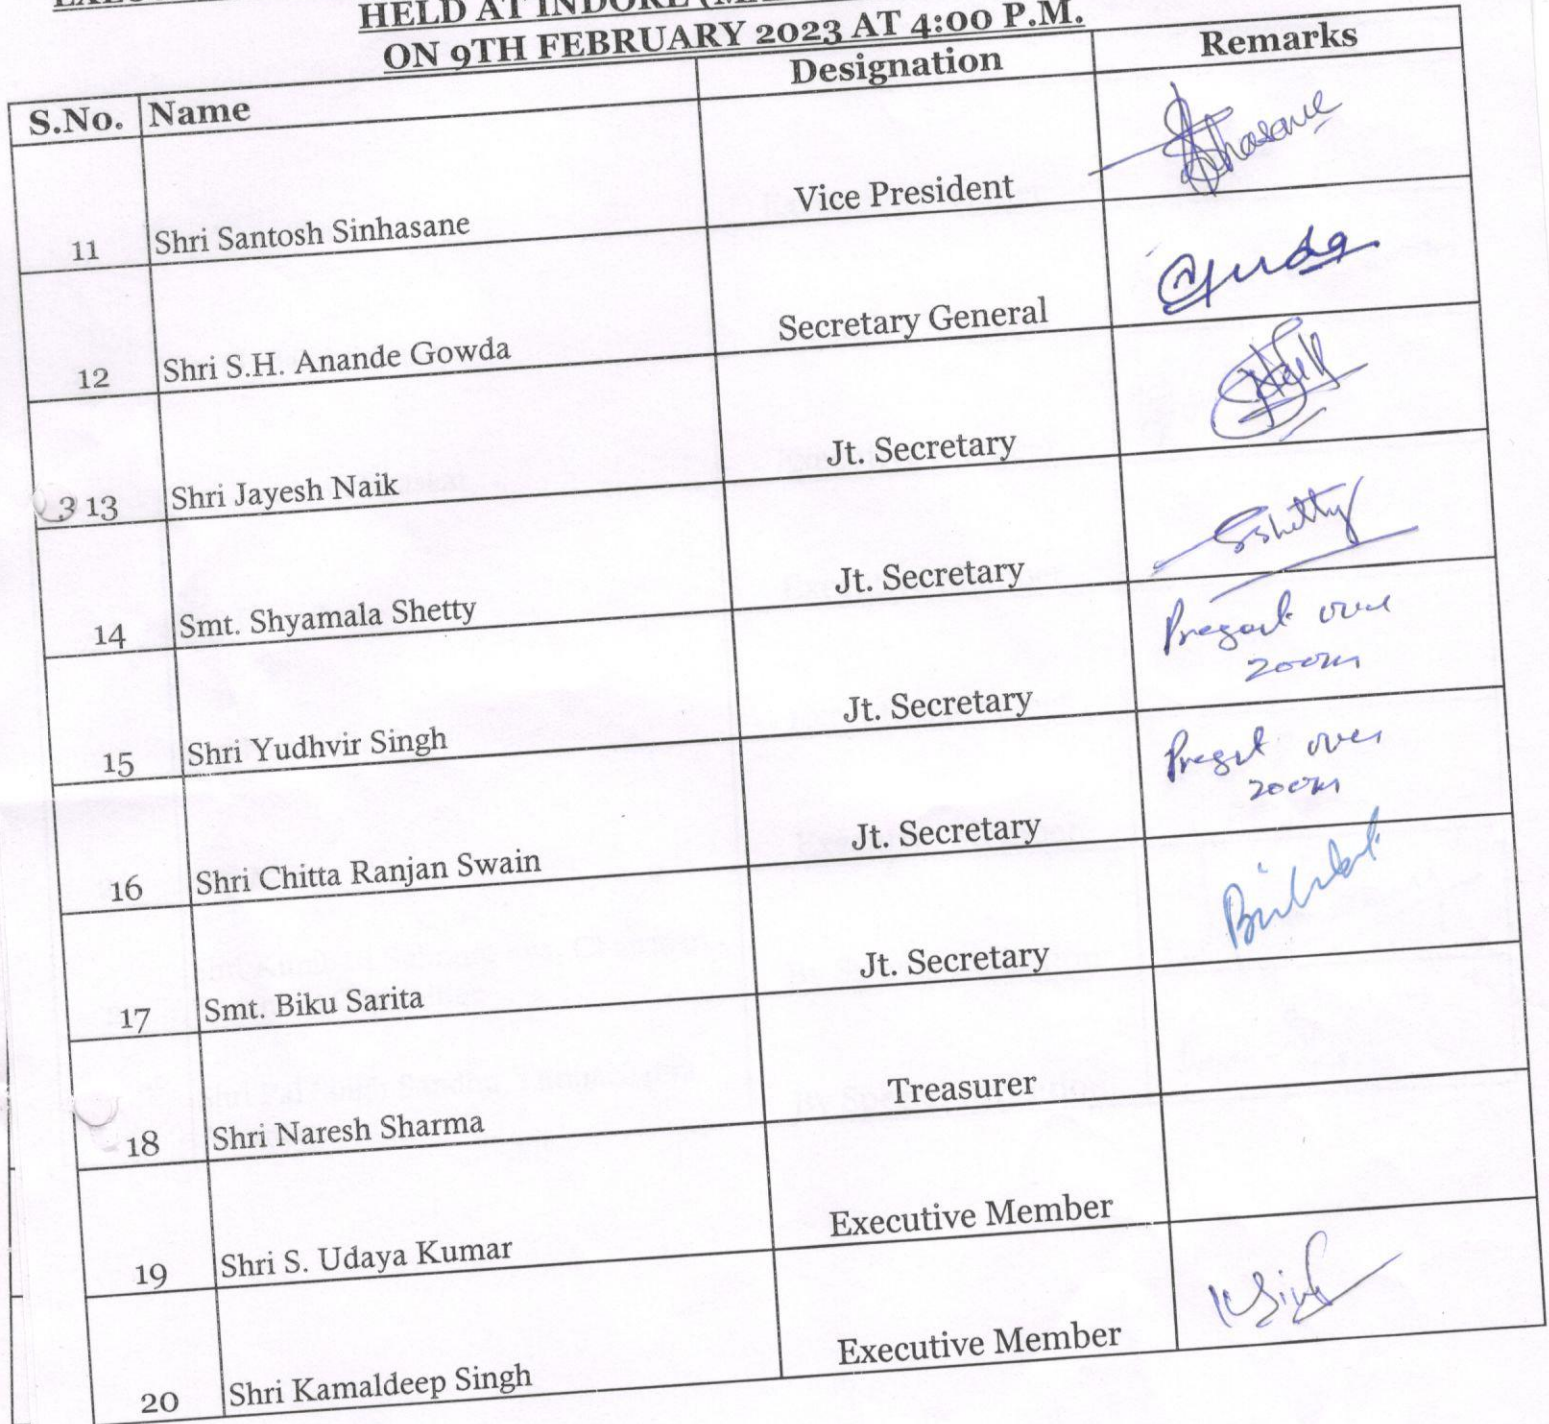 HELD AT INDORE
ON 9TH FEBRUARY 2023 AT 4:00 P.M.
S.No. Name Designation Remarks
11 Shri Santosh Sinhasane Vice President
12 Shri S.H. Anande Gowda Secretary General
3 13 Shri Jayesh Naik Jt. Secretary
14 Smt. Shyamala Shetty Jt. Secretary SShetty
15 Shri Yudhvir Singh Jt. Secretary Present over
zoom
16 Shri Chitta Ranjan Swain Jt. Secretary Present over
zoom
17 Smt. Biku Sarita Jt. Secretary
18 Shri Naresh Sharma Treasurer
19 Shri S. Udaya Kumar Executive Member
20 Shri Kamaldeep Singh Executive Member